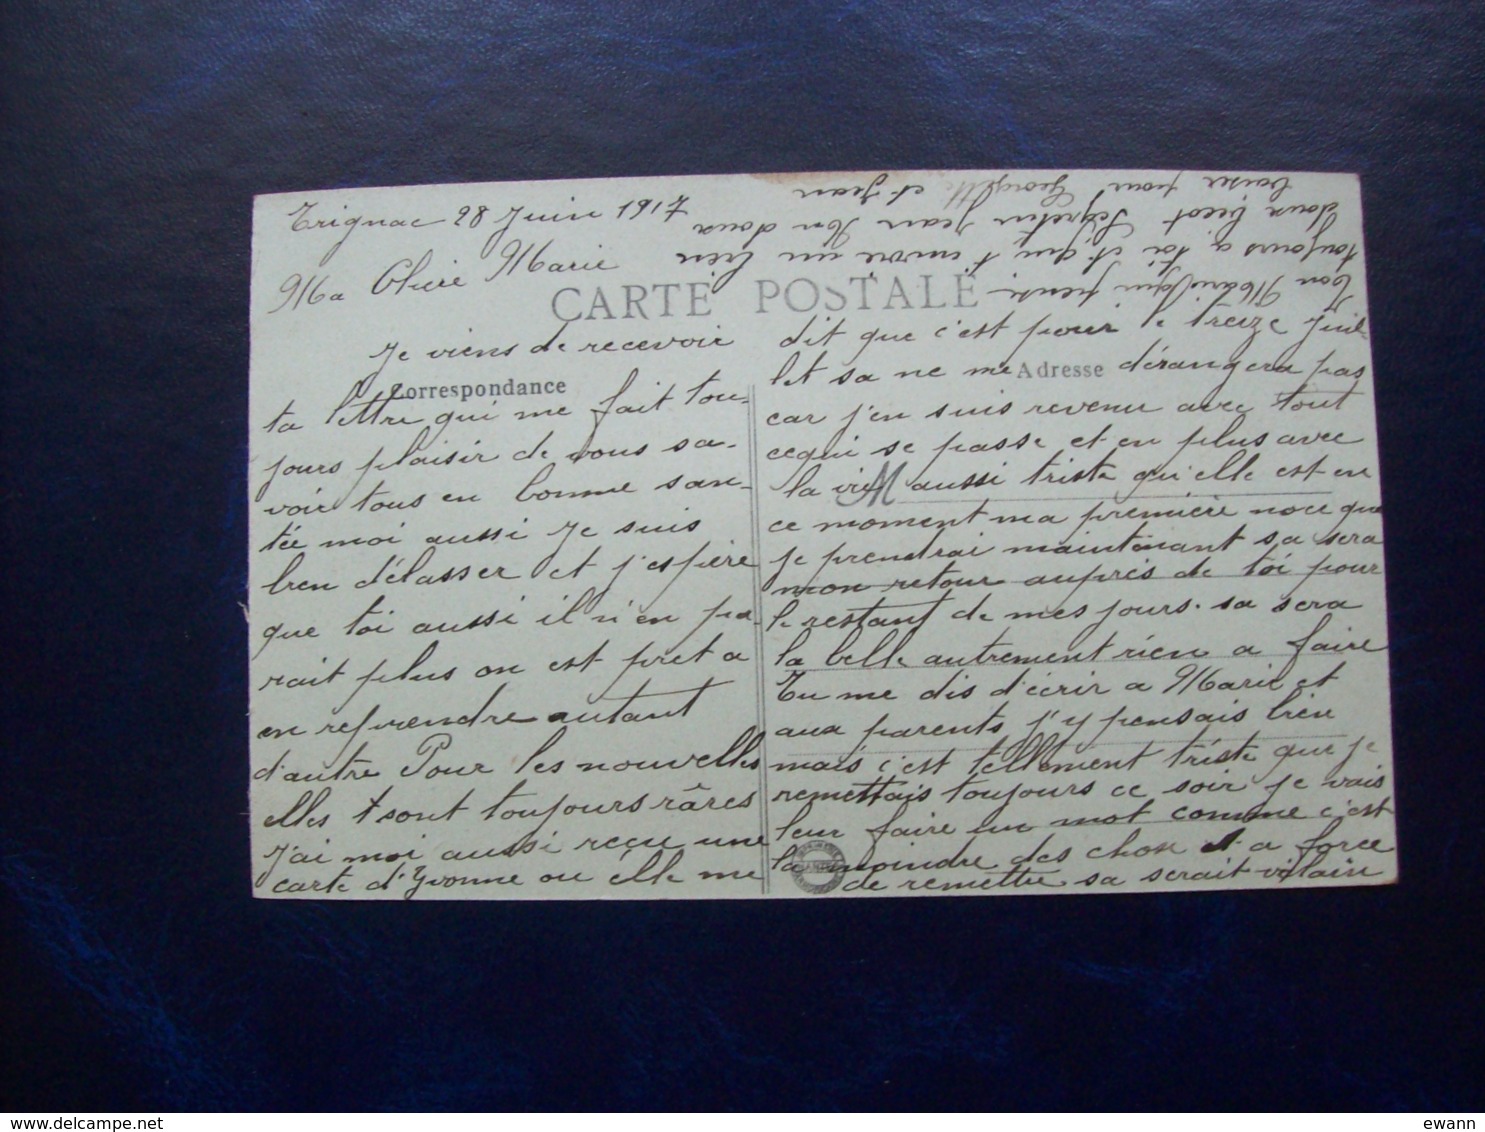 Trignac 28 Juin 1917
Ma Chère Marie
CARTE POSTALE
Je viens de recevoir
Correspondance
ta lettre qui me fait tou-
jours plaisir de vous sa-
voir tous en bonne san-
tée moi aussi je suis
bien délasser et j'espère
que toi aussi il n'en pa-
rait plus on est pret a
en reprendre autant
d'autre Pour les nouvelles
elles sont toujours râres
J'ai moi aussi reçu une
carte d'Yvonne ou elle me
dit que c'est pour le treize Juil-
Adresse
let sa ne me dérangera pas
car j'en suis revenu avec tout
cequi se passe et en plus avec
la vie aussi triste qu'elle est en
ce moment ma première noce que
je prendrai maintenant sa sera
mon retour auprès de toi pour
le restant de mes jours. sa sera
la belle autrement rien a faire
Tu me dis d'écrir a Marie et
aux parents j'y pensais bien
mais c'est tellement triste que je
remettais toujours ce soir je vais
leur faire un mot comme c'est
la moindre des chose et a force
de remettre sa serait vilain
Ton Mari qui pense
toujours a toi et qui t'envoie un bien
doux bécot Segretin Jean Un doux
baiser pour Georgette et Jean
ewann